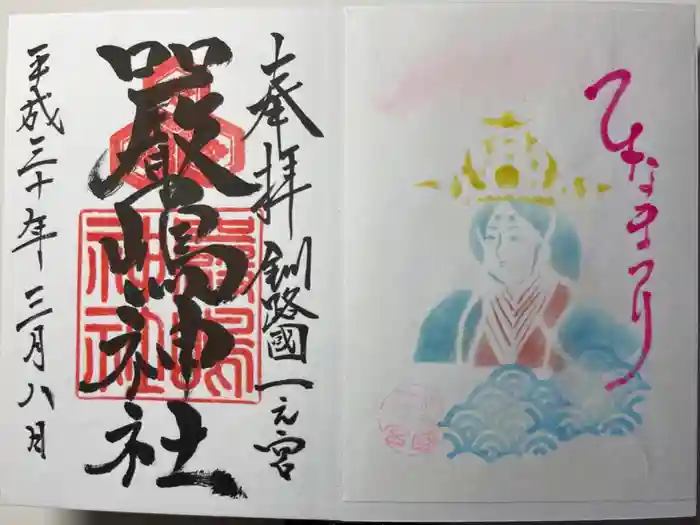 ひなまつり
奉拝
釧路國一之宮
嚴嶋神社
平成三十年三月八日